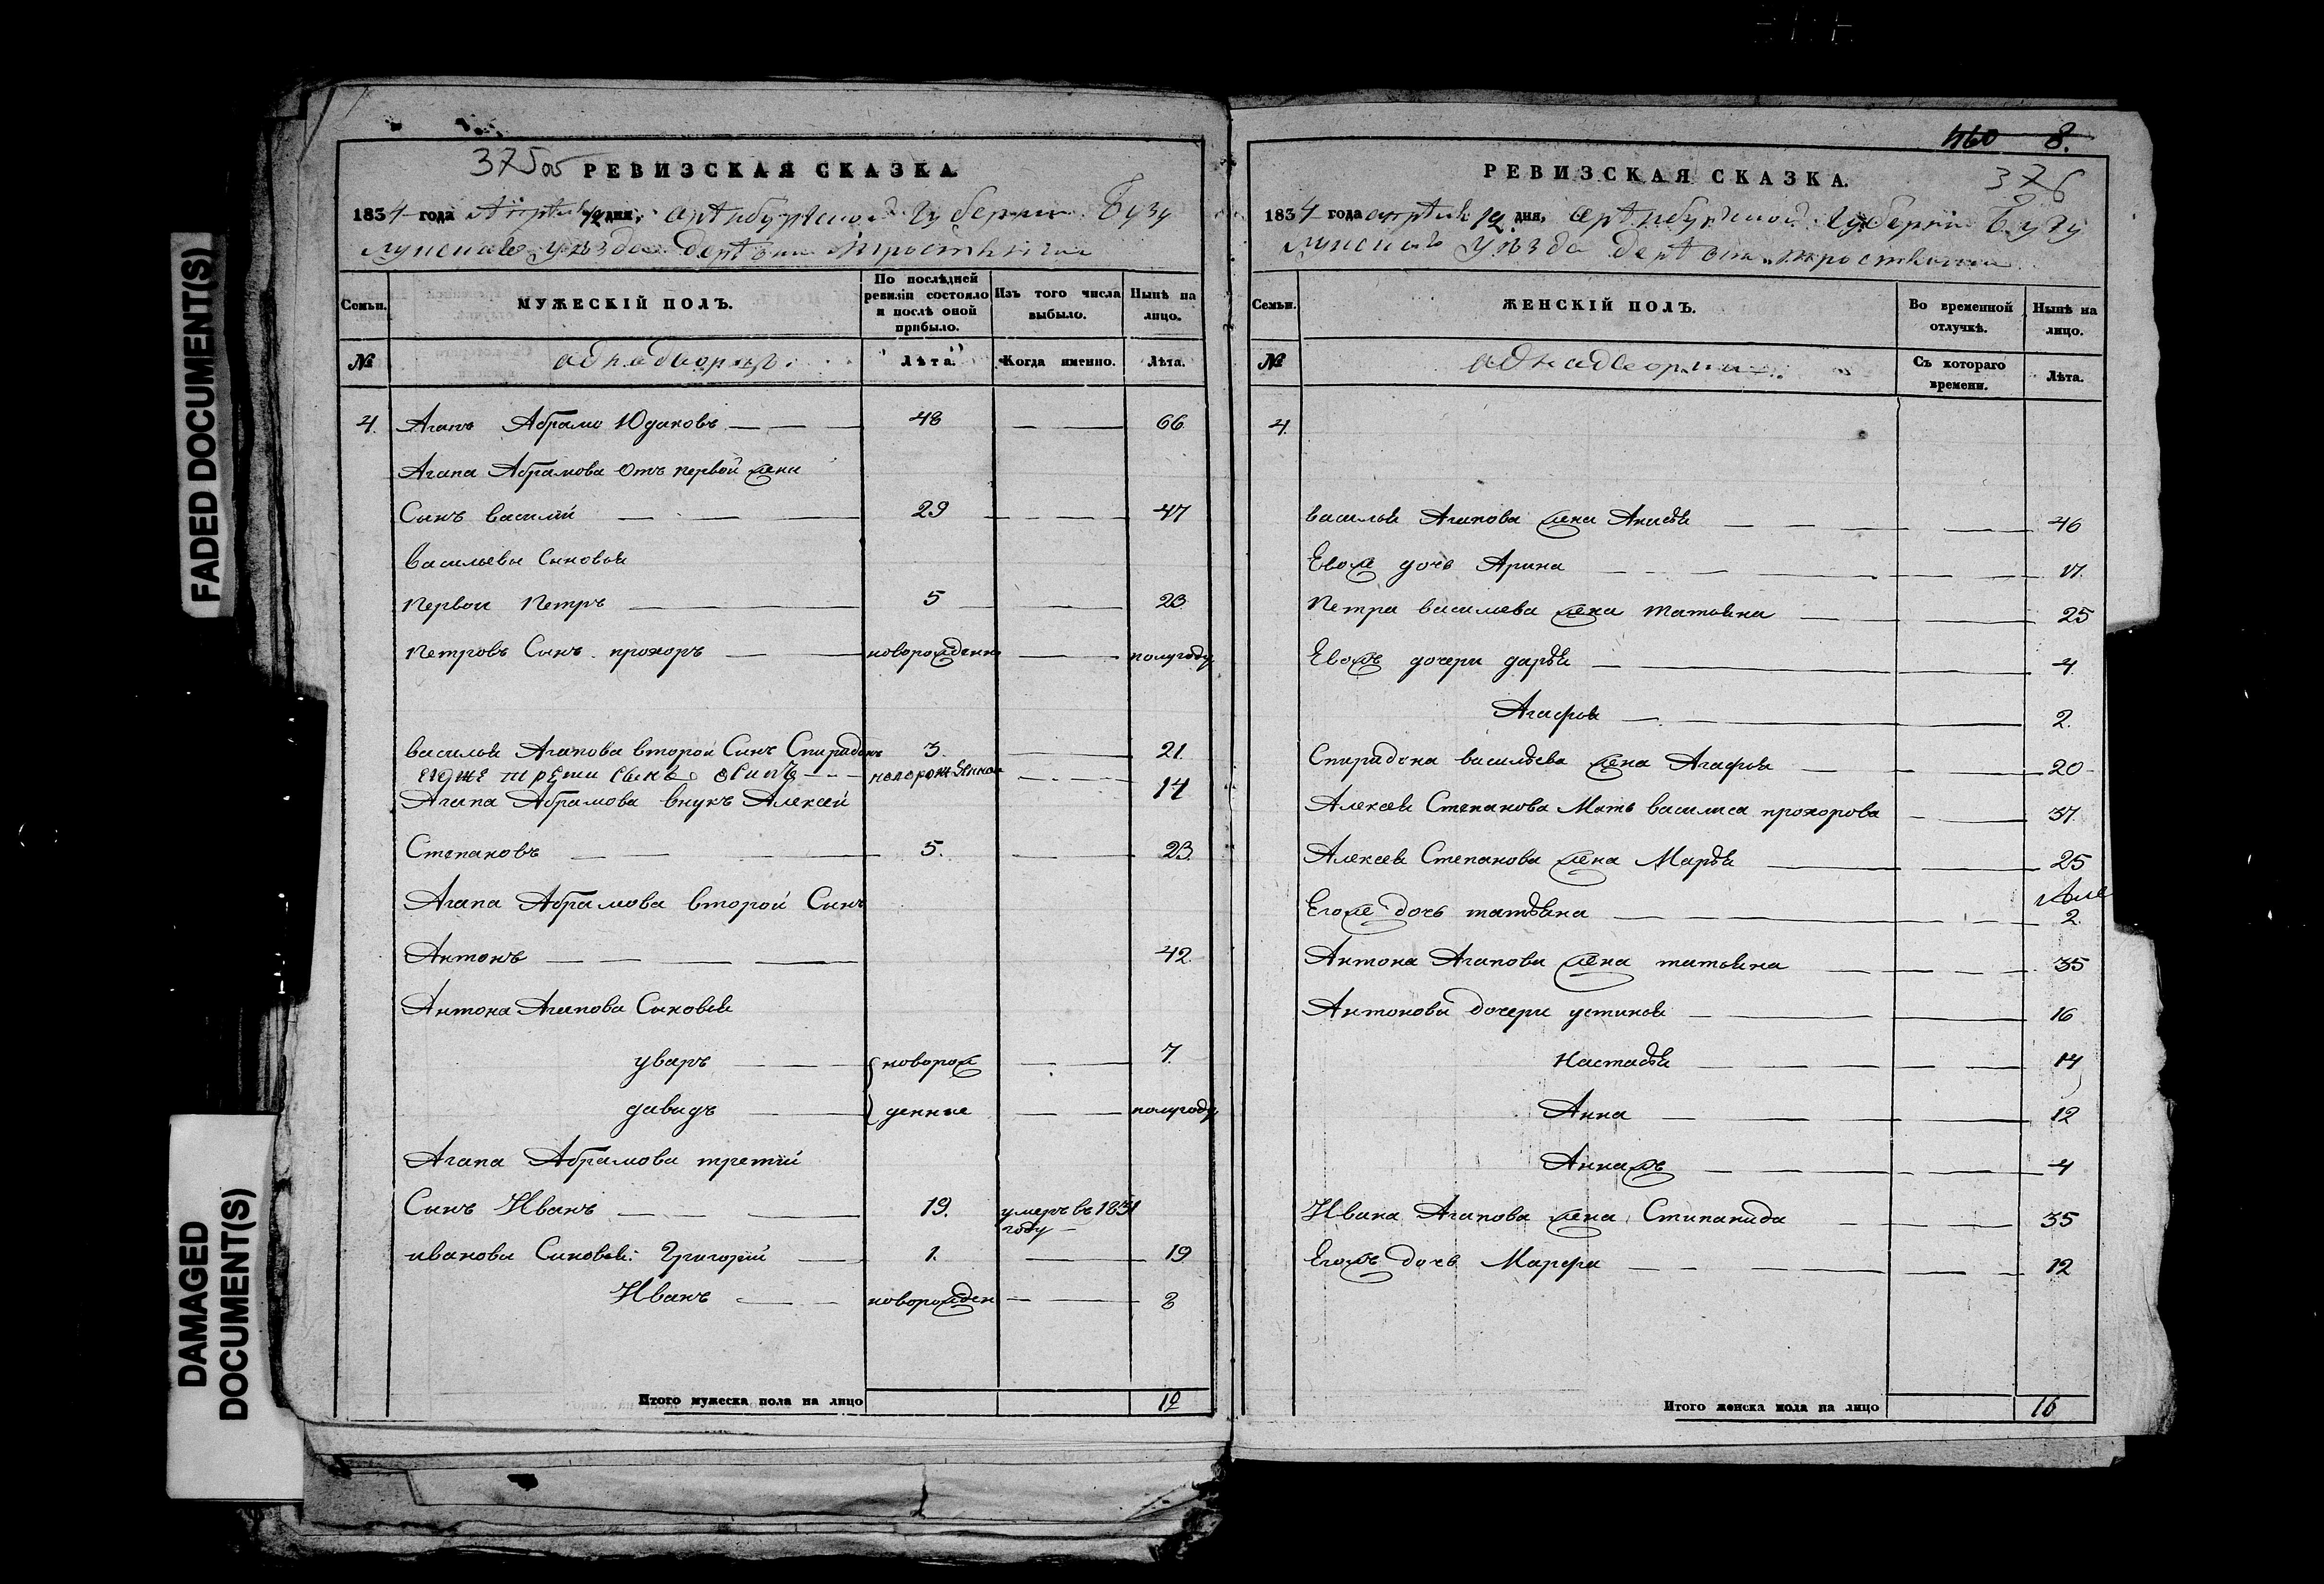 FADED DOCUMENT(S)
DAMAGED
DOCUMENT(S)
375об РЕВИЗСКАЯ СКАЗКА
1834 года дня, губернии Бузу
лускаго уезда
Семьи. МУЖЕСКІЙ ПОЛЪ. По послѣдней ревизіи состояло и послѣ оной прибыло. Изъ того числа выбыло. Нынѣ на лицо.
№ аднадворцы Лѣта. Когда именно. Лѣта.
4. Агапъ Абрамо Юдаковъ 48 66
Агапа Абрамова отъ первой жены
Сынъ василий 29 47
васильевы сыновья
первои Петръ 5 23
петровъ Сынъ прохоръ новорожденн полугоду
василья Агапова второи Сынъ Спиридонъ 3 21
егоже трети сынъ осипъ 14
Агапа Абрамова внукъ Алексей
Степановъ 5. 23
Агапа Абрамова второй Сынъ
Антонъ 42
Антона Агапова Сыновья
уваръ новорож 7.
давидъ денные полугоду
Агапа Абрамова третий
Сынъ Иванъ 19. умеръ въ 1831
году
иванова Сыновья: Григорий 1. 19
Иванъ новорожден
Итого мужеска пола на лицо 12
460 8.
376
РЕВИЗСКАЯ СКАЗКА.
1834 года 12 дня, губернии Бузу
Семьи. ЖЕНСКІЙ ПОЛЪ. Во временной отлучкѣ. Нынѣ на лицо.
№ Съ котораго времени. Лѣта.
4.
василья Агапова жена 46
Евож дочь Арина 17.
Петра васильева жена татьяна 25
Евожъ дочери дарья 4.
Агафья 2.
Спиридона васильева жена Агафья 20
Алексея Степанова Мать василиса прохорова 37.
Алексея Степанова жена Марья 25
Егож дочь татьяна 2.
Антона Агапова жена татьяна 35
Антонова дочери устинья 16
Настасья 14
Анна 12
Аннажъ 4
Ивана Агапова жена Стипанида 35
Егожъ дочь Марфа 12
Итого женска пола на лицо 16